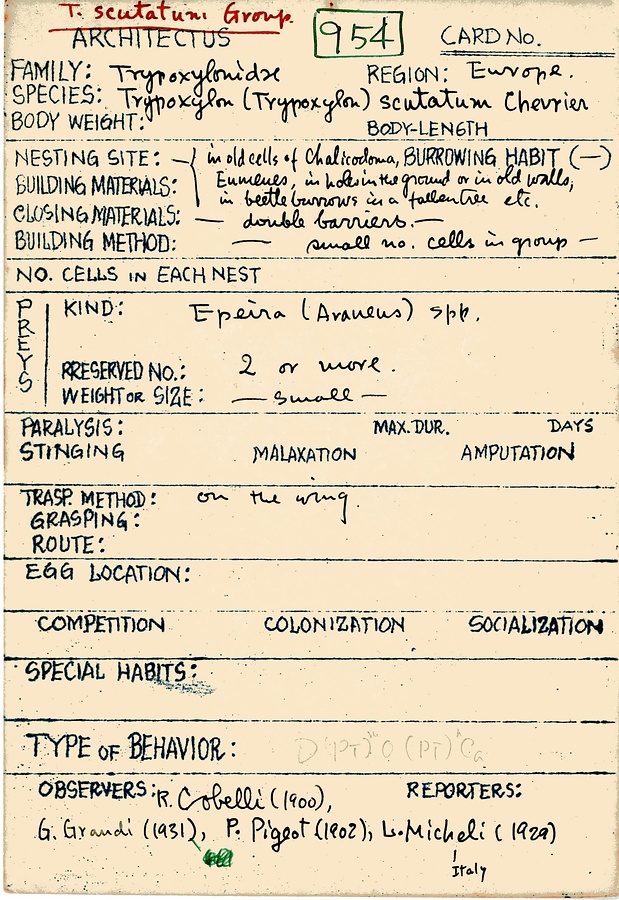 T. scutatum Group.
ARCHITECTUS 954 CARD NO.
FAMILY: Trypoxylonidae REGION: Europe.
SPECIES: Trypoxylon (Trypoxylon) scutatum Chevrier
BODY WEIGHT: BODY-LENGTH
NESTING SITE: — in old cells of Chalicodoma, BURROWING HABIT (—)
BUILDING MATERIALS: Eumenes, in holes in the ground or in old walls,
in beetle burrows in a fallen tree etc.
CLOSING MATERIALS: — double barriers. —
BUILDING METHOD: — small no. cells in group —
NO. CELLS IN EACH NEST
PREYS
KIND: Epeira (Araneus) spp.
PRESERVED NO.: 2 or more.
WEIGHT OR SIZE: — small —
PARALYSIS: MAX. DUR. DAYS
STINGING MALAXATION AMPUTATION
TRASP. METHOD: on the wing.
GRASPING:
ROUTE:
EGG LOCATION:
COMPETITION COLONIZATION SOCIALIZATION
SPECIAL HABITS:
TYPE OF BEHAVIOR:
OBSERVERS: R. Cobelli (1900), REPORTERS:
G. Grandi (1931), P. Pigeot (1902), L. Micheli (1929)
Italy